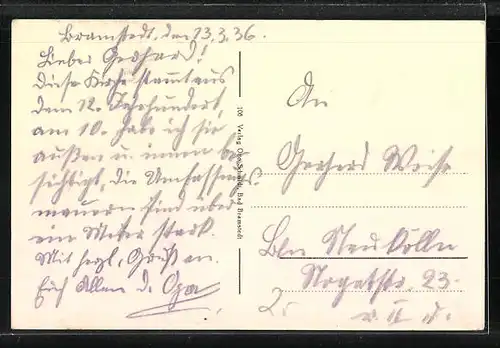 Bramstedt, den 13.3.36.
Lieber Gerhard!
Diese Kirche stammt aus
dem 12. Jahrhundert,
am 10. habe ich sie
außen u. innen be
sichtigt, die Umfassungs
mauern sind über
ein Meter stark.
Mit herzl. Gruß an
Euch Allen d. Opa
106 Verlag Otto Bad Bramstedt
An
Gerhard Weise
Bln Neukölln
Nogatstr. 23.